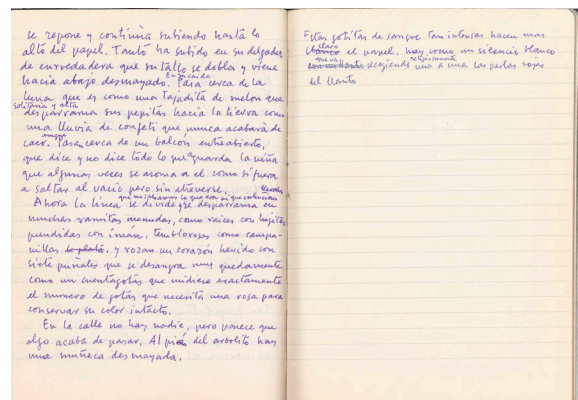 se repone y continúa subiendo hasta lo
alto del papel. Tanto ha subido en su delgadez
de enredadera que su tallo se dobla y viene
hacia abajo desmayado. En su caída Pasa cerca de la
luna que es como una tajadita de melón que
solitaria y alta
desparrama sus pepitas hacia la tierra como
una lluvia de confeti que nunca acabará de
caer. Pasa cerca de un balcón entreabierto,
que dice y no dice todo lo que guarda la niña
que algunas veces se asoma a él como si fuera
a saltar al vacío pero sin atreverse.
Ahora la línea se divide y se desparrama en
muchas ramitas menudas, como raíces con hojitas
prendidas con imán, temblorosas como campa-
nillas de plata, y rozan un corazón herido con
siete puñales que se desangra muy quedamente
como un cuentagotas que midiese exactamente
el numero de gotas que necesita una rosa para
conservar su color intacto.
En la calle no hay nadie, pero parece que
algo acaba de pasar. Al pie del arbolito hay
una muñeca desmayada.
Estas gotitas de sangre tan intensas hacen mas
claro
blanco el papel, hay como un silencio blanco
religiosamente
recogiendo una a una las perlas rojas
del llanto